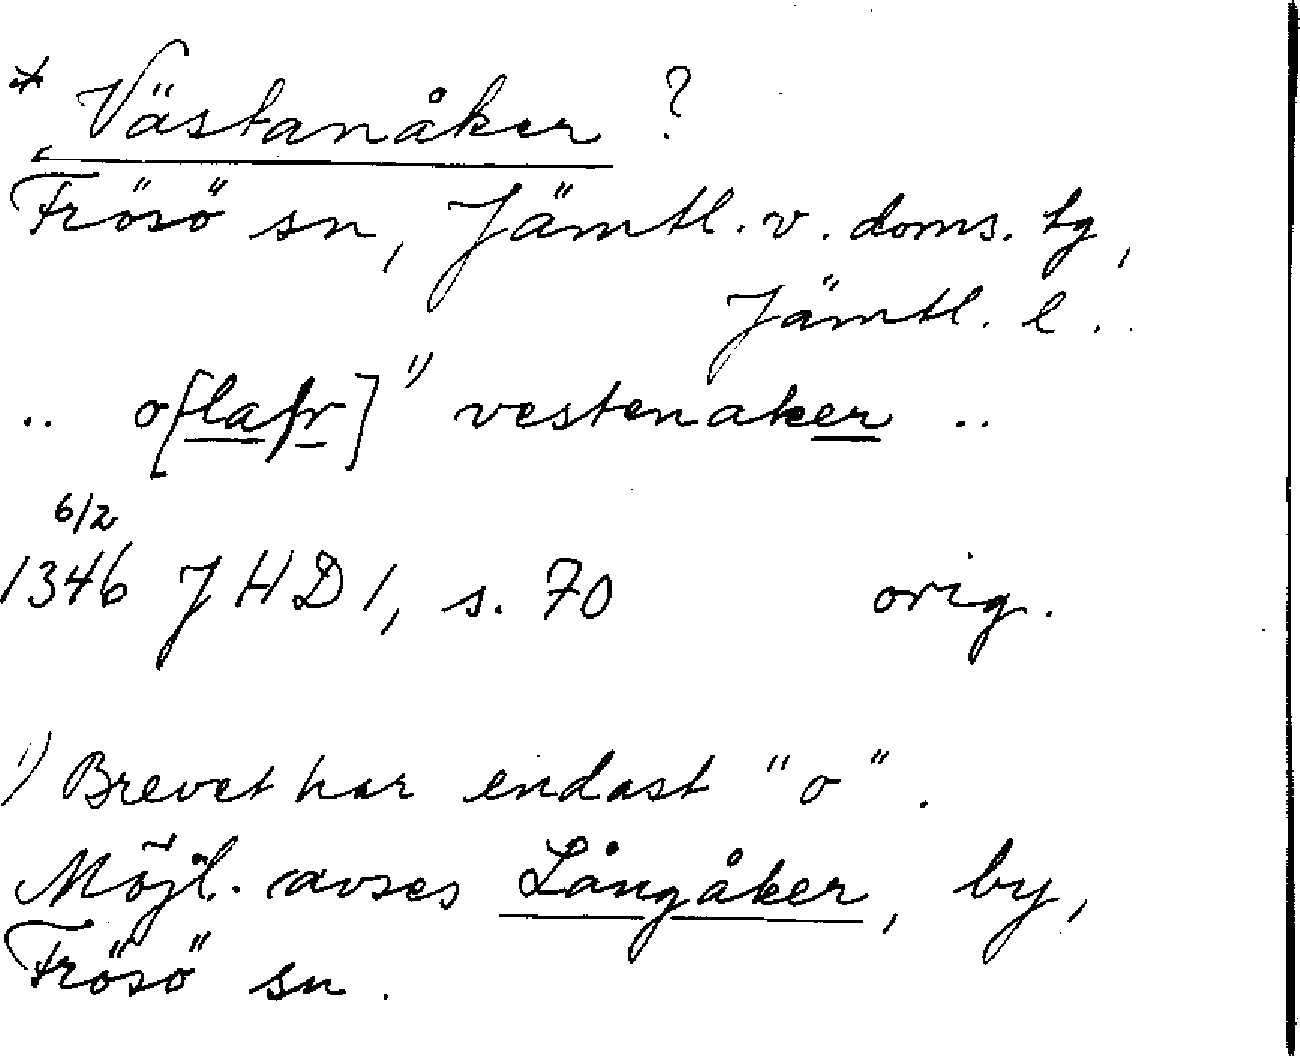 * Västanåker ?
Frösö sn, Jämtl. v. doms. tg,
Jämtl. l..
.. o[lafr]¹⁾ vestenaker ..
6/2
1346 JHD 1, s. 70 orig.
¹⁾ Brevet har endast "o".
Möjl. avses Långåker, by,
Frösö sn.